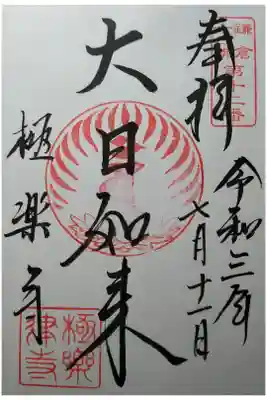 奉拝
令和三年
七月十一日
大日如来
極楽寺
鎌倉
第十二番
極樂
律寺